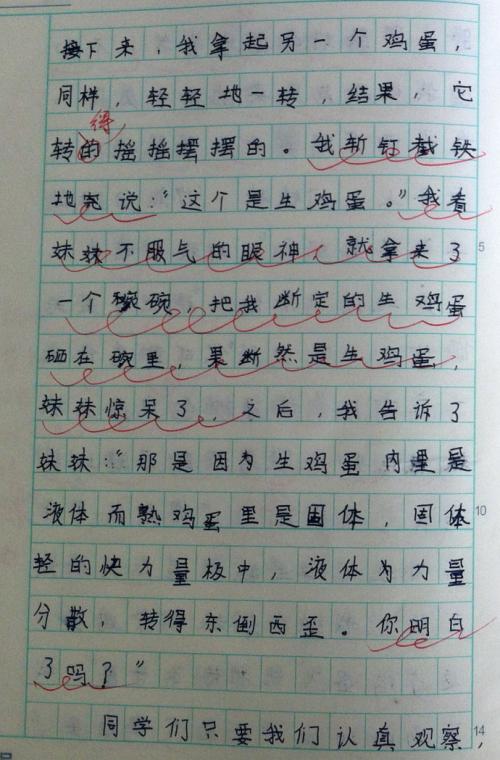 接下来，我拿起另一个鸡蛋，
同样，轻轻地一转，结果，它
得
转的摇摇摆摆的。我斩钉截铁
地说："这个是生鸡蛋。"我看
妹妹不服气的眼神，就拿来了
5
一个碗，把我断定的生鸡蛋
砸在碗里，果断然是生鸡蛋，
妹妹惊呆了，之后，我告诉了
妹妹："那是因为生鸡蛋内里是
液体而熟鸡蛋里是固体，固体
10
轻的快为量极中，液体为力量
分散，转得东倒西歪。你明白
了吗？"
同学们只要我们认真观察，
14